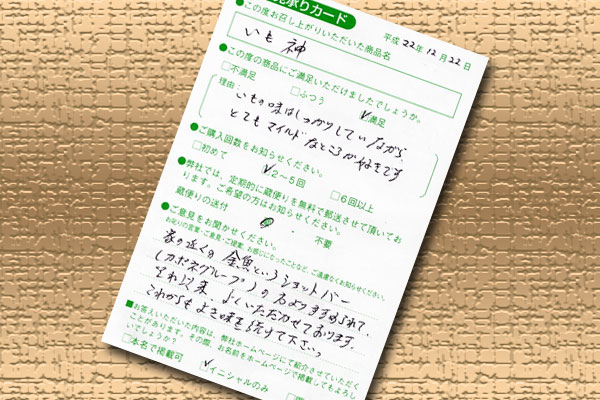 承りカード
平成22年12月22日
●この度お召し上がりいただいた商品名
いも神
●この度の商品にご満足いただけましたでしょうか。
□不満足 □ふつう □満足
理由
いもの味はしっかりしていながら
とてもマイルドなところが好きです
●ご購入回数をお知らせください。
□初めて □2～5回 □6回以上
●弊社では、定期的に蔵便りを無料で郵送させて頂いてお
ります。ご希望の方はお知らせください。
蔵便りの送付 不要
●ご意見をお聞かせください。
お叱りの言葉・ご意見・ご提案・お感じになったことなど、ご遠慮なくお知らせください。
家の近くの金魚というショットバー
(カボネグループ)の方よりすすめられて、
それ以来よくいただかせております。
これからもよき味を続けて下さい。
■お答えいただいた内容は、弊社ホームページにて紹介させていただく
ことがあります。その際、お名前をホームページで掲載してもよろし
いでしょうか?
□本名で掲載可 □イニシャルのみ